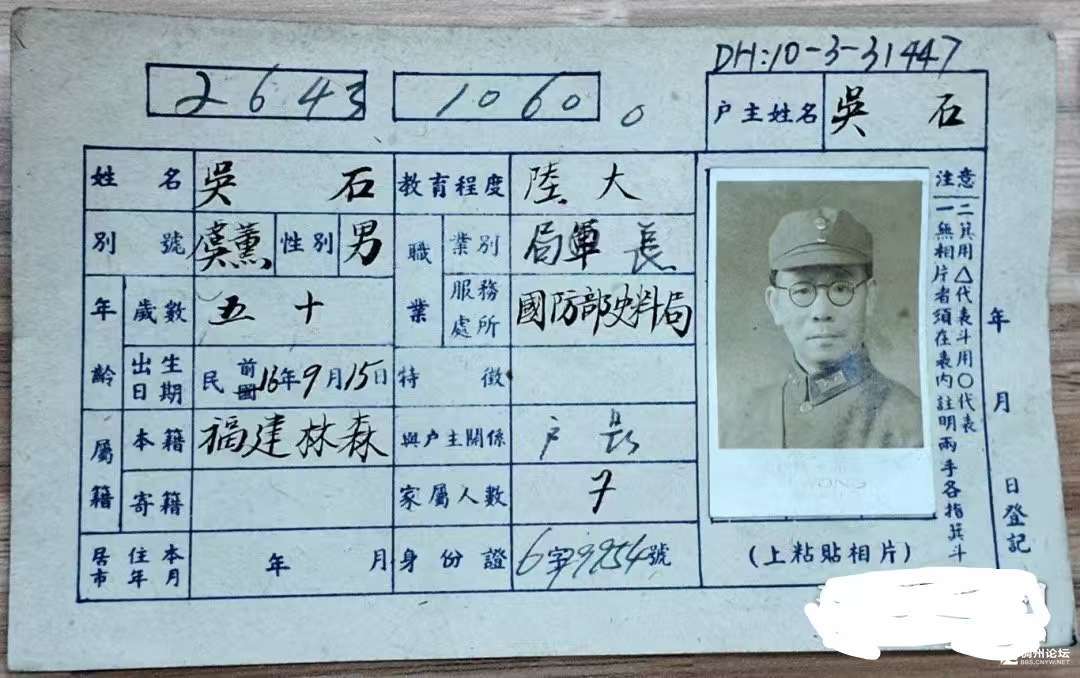 DH:10-3-31447
2643 1060。
户主姓名 吳石
姓名 吳石 教育程度 陸大
別號 虞薰 性別 男 職業 業別 局軍長
年齡 歲數 五十 服務處所 國防部史料局
出生日期 民前國16年9月15日 特徵
屬籍 本籍 福建林森 與户主關係 户長
寄籍 家屬人數 7
居住本市年月 年 月 身份證 6字9954號
注意
一無相片者須在表內註明兩手各指箕斗
二箕用△代表斗用〇代表
年 月 日登記
(上粘貼相片)
BBS.CNYW.NET